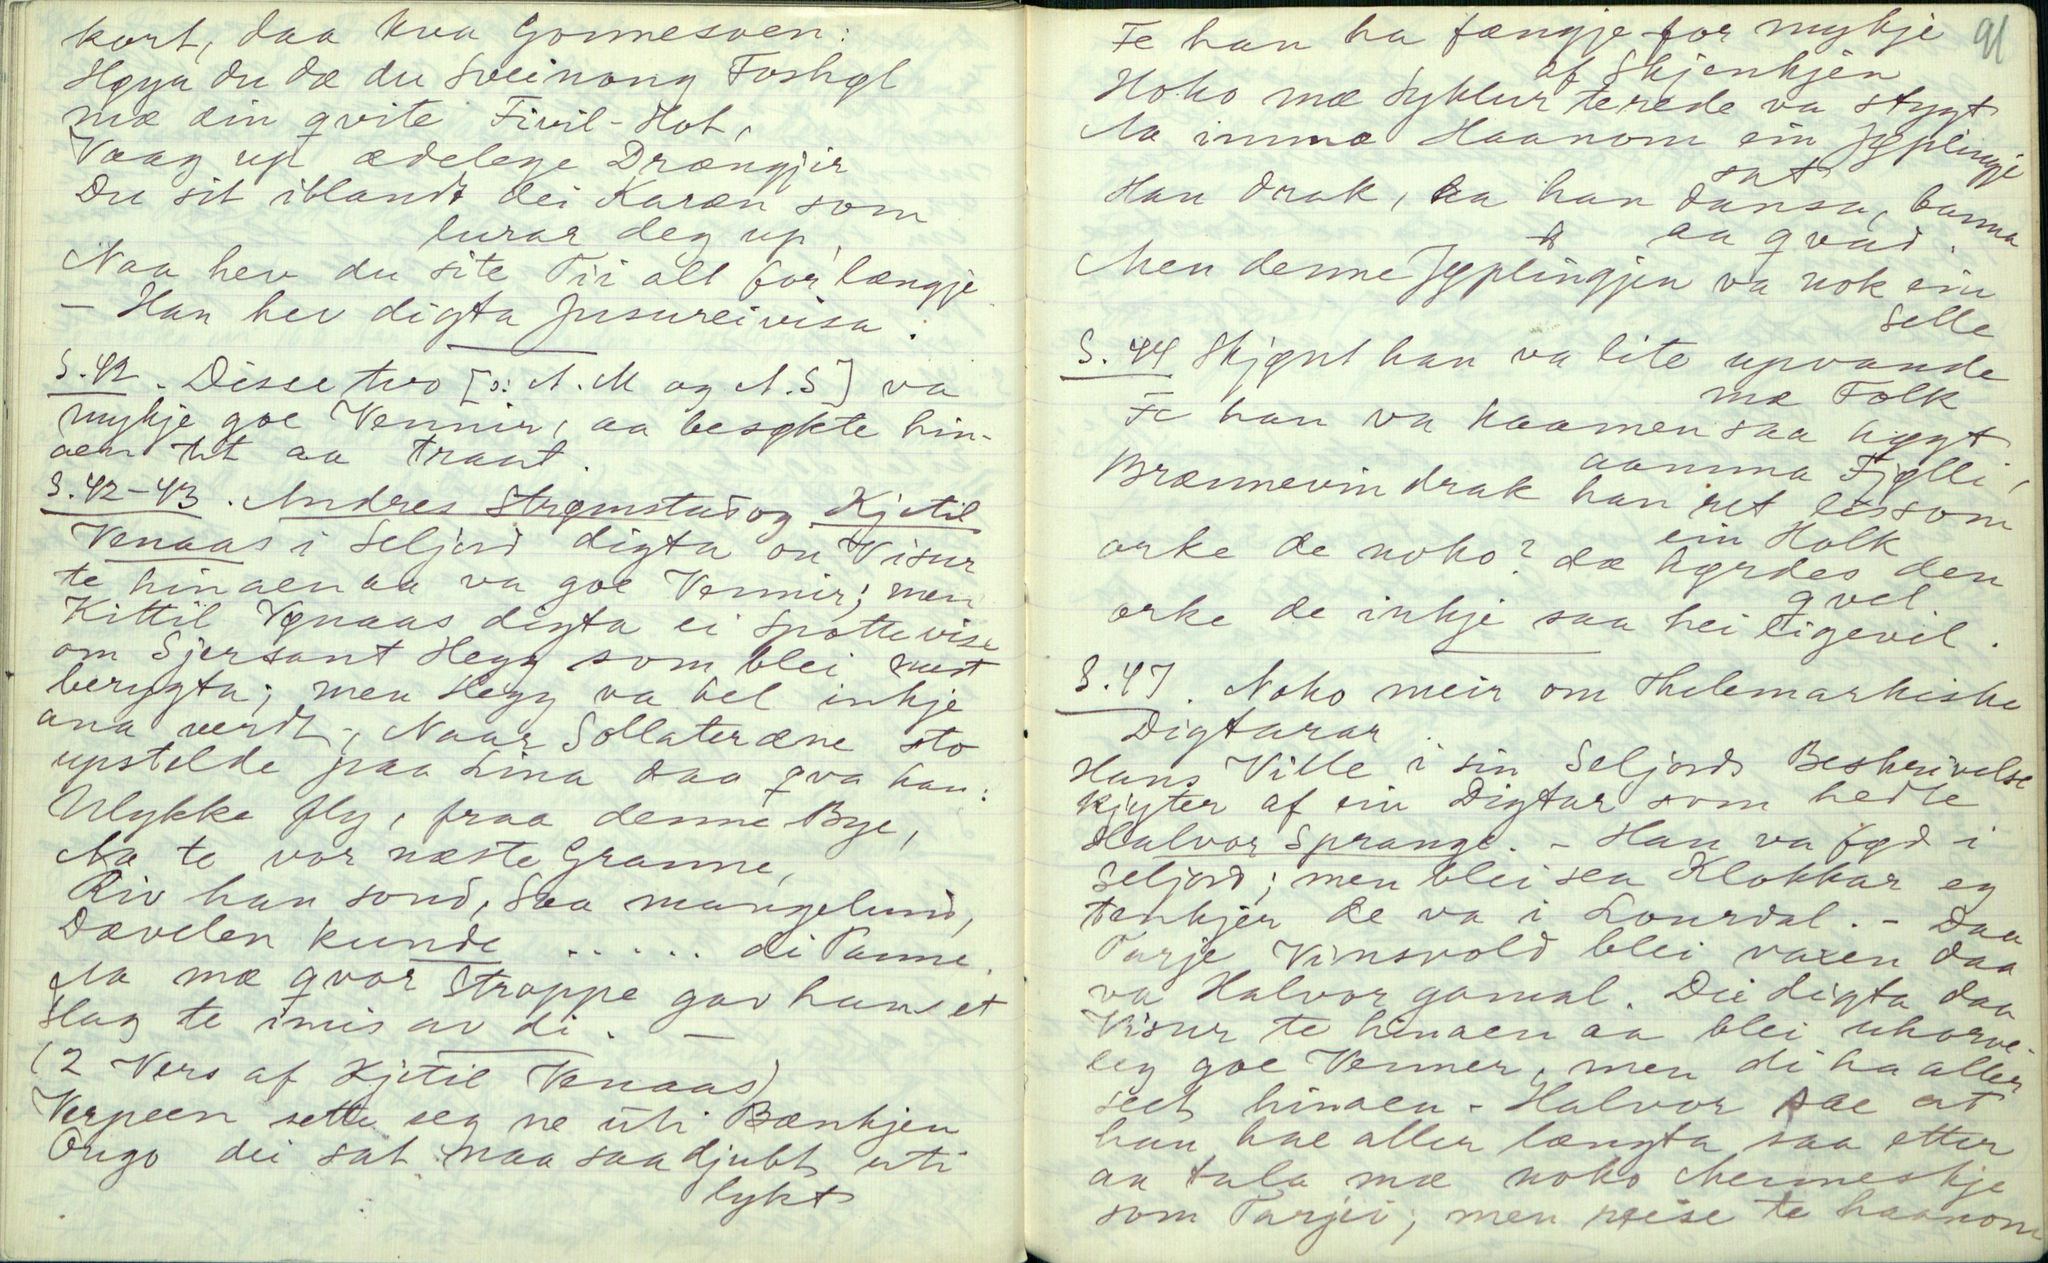 kort, daa kva Gonnesven:
Høyr du dæ du Sveinong Foshøl
mæ din qvite Fivil-Hot,
Vaag up ædelege Drængjir
Du sit iblandt dei Karæn som
lurar deg up,
Naa hev du site Tii alt for længje
– Han hev digta Jusureivisa.
S. 42. Disse two [ɔ: A. M og A. S] va
mykje goe Vennir, aa besøkte hin-
aen tit aa traat.
S. 42-43. Andres Strømstad og Kjetil
Venaas i Seljord digta ou Visur
te hinaen aa va goe Vennir; men
Kittil Vønaas digta ei Spottevise
om Sjersant Hegg som blei mest
berygta; men Hegg va vel inkje
ana verdt; Naar Sollateræne sto
upstelde paa Lina daa qva han:
Ulykke fly, fraa denne Bye,
Aa te vor næste Granne,
Riv han sond, Saa mangelund,
Dævelen kunde ..... di Panne.
Aa mæ qvor Stroppe gav han et
Slag te imis av di. –
(2 Vers af Kjetil Venaas)
Verpeen sette seg ne uti Bænkjen
Ougo dei sat naa saa djubt uti
lykt
91
Fe han ha fængje for mykje
af Skjenkjen
Hoko mæ Syklur terede va stygt
Aa imma Haanom ein Jyplingje
sat
Han drak, aa han dansa, banna
aa qvad.
Men denne Jyplingjen va nok ein
Selle
S. 44 Skjønt han va lite upvande
mæ Folk
Fe han va kaamen saa høgt
aamma Fjølli,
Brænnevin drak han ret lissom
ein Holk
orke de noko? dæ hørdes den
qvel.
orke de inkje saa hei ligevil.
S. 47. Noko meir om Thelemarkiske
Digtarar
Hans Wille i sin Seljords Beskrivelse
kjyter af ein Digtar som hedte
Halvor Sprange. – Han va fød i
Seljord; men blei sea Klokkar eg
tenkjer de va i Lourdal. – Daa
Tarje Vinsvold blei vaxen daa
va Halvor gamal. Dei digta daa
Visur te hinaen aa blei uhorve-
leg goe Venner, men di ha aller
seet hinaen – Halvor sae at
han hae aller længta saa etter
aa tala mæ noko Menneskje
som Tarjei; men reise te haanom